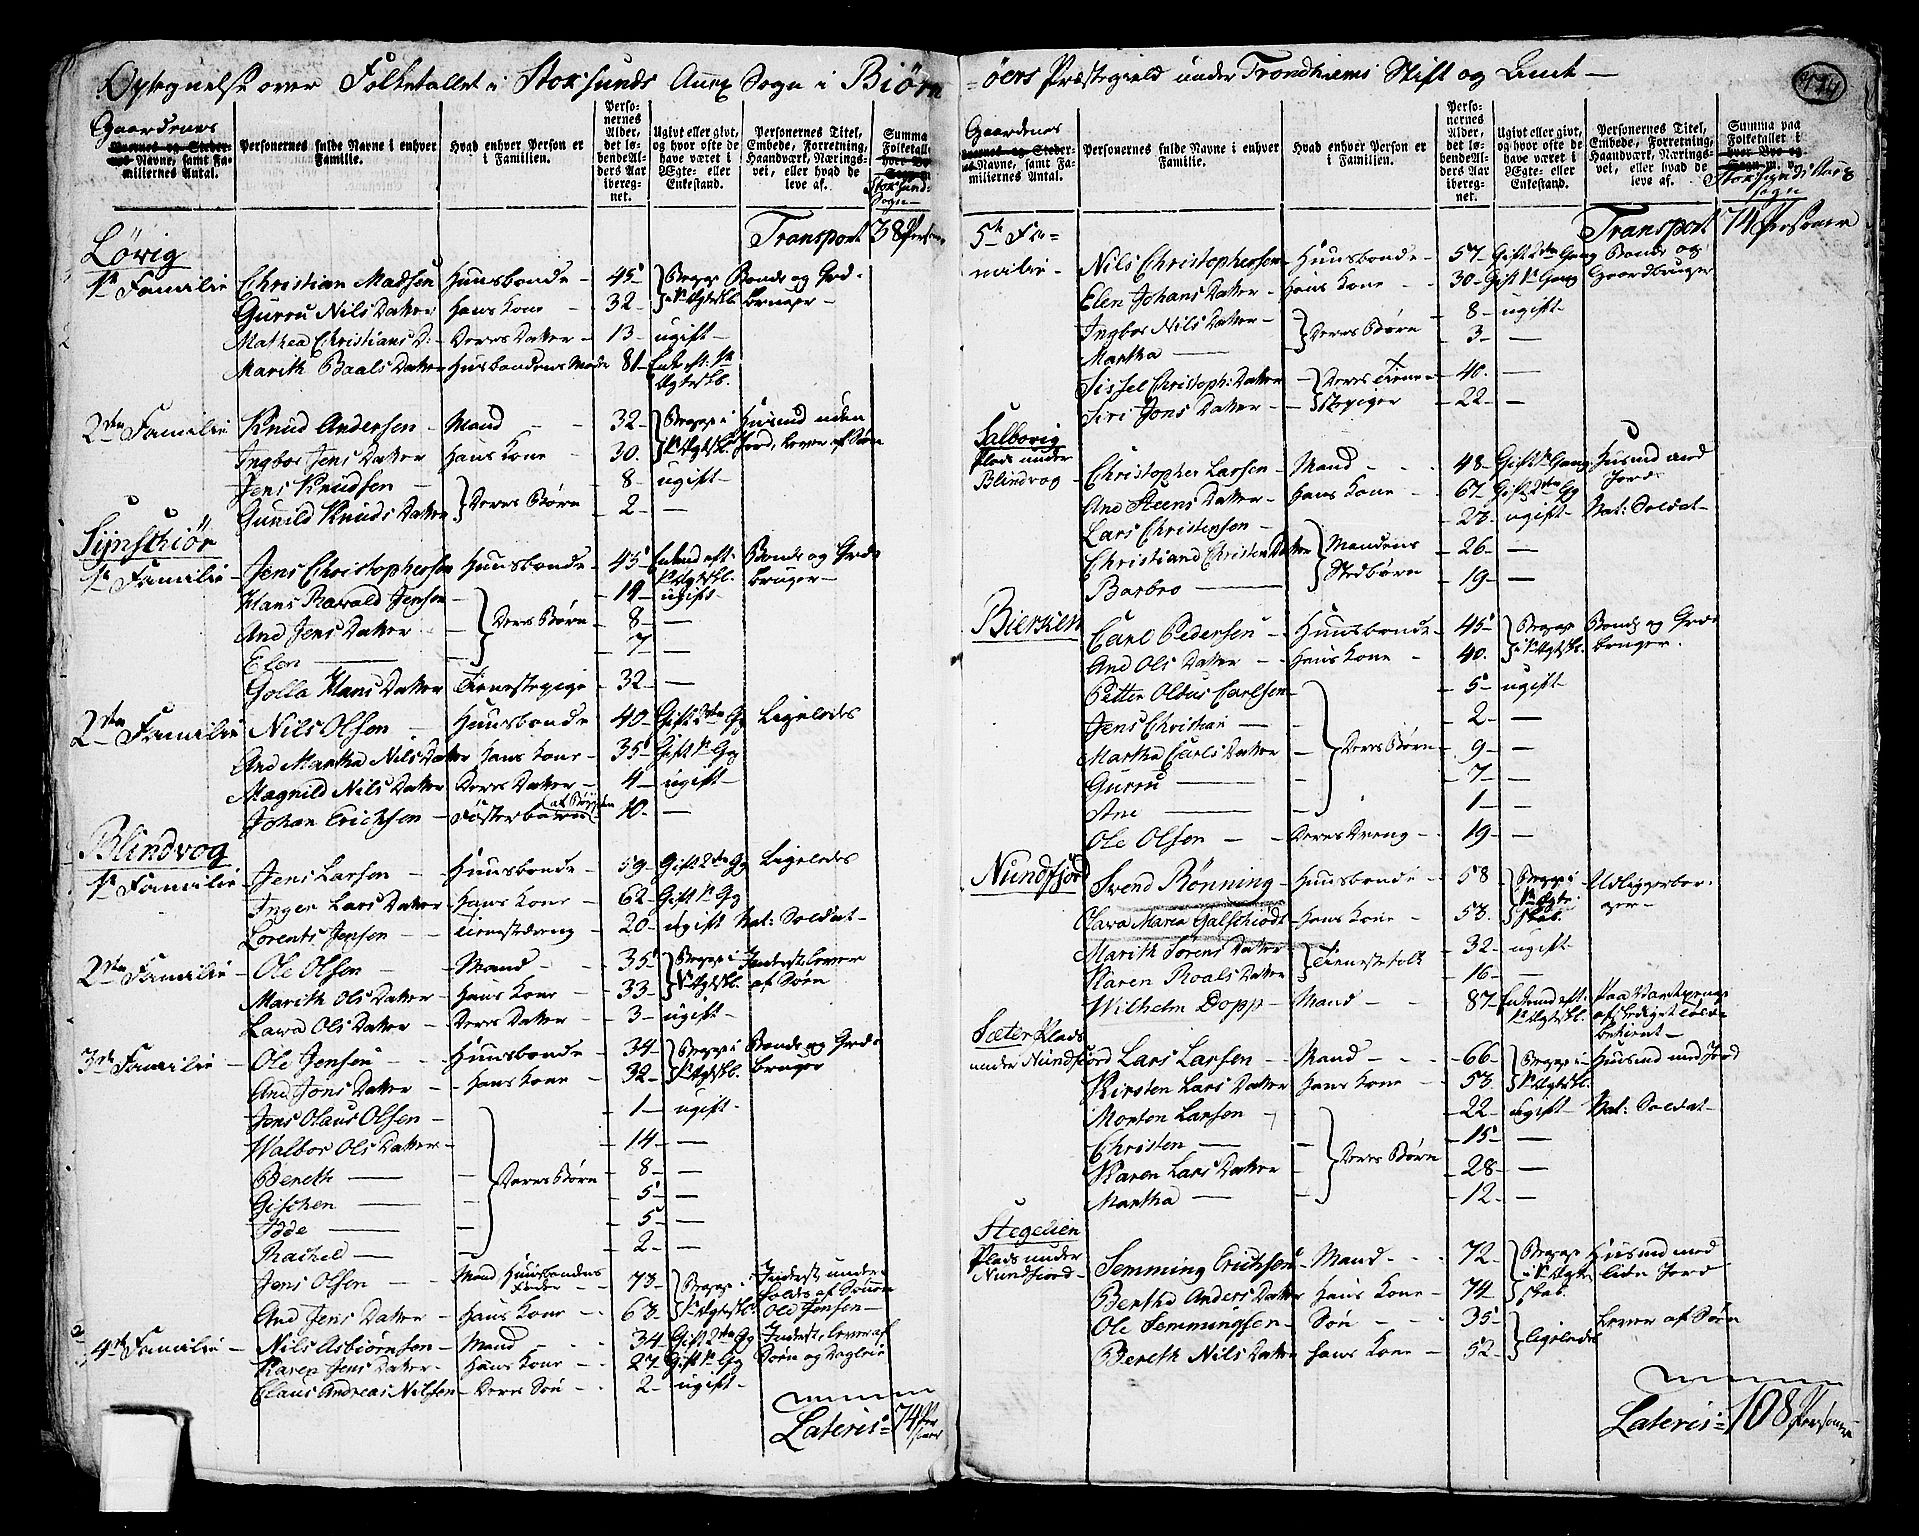 Optegnelse over Folketallet i Stoksunds Anex Sogn i Biørn
Gaardenes Navne, samt Familiernes Antal.
Personernes fulde Navne i enhver Familie.
Hvad enhver Person er i Familien.
Personernes Alder, det løbende Alders Aar iberegnet.
Ugivt eller givt, og hvor ofte de have været i Ægte- eller Enkestand.
Personernes Titel, Embede, Forretning, Haandværk, Næringsvei, eller hvad de leve af.
Summa Folketallet Stoksunds Sogn
Transport 38 Personer
Løvig
1te Familie Christian Madsen Huusbonde 45 Begge i 1te Ægteskb. Bonde og Gaardbruger
Gurru Nils Datter Hans Kone 32
Mathea Christians D: Deres Datter 13 ugift
Marith Baals Datter Husbondens Moder 81 Enke eft: 1te Ægteskb.
2den Familie Knud Andersen Mand 32 Begge i 1te Ægteskb. Husmd uden Jord, lever af Søen
Ingbor Jens Datter Hans Kone 30
Jens Knudsen Deres Børn 8 ugift
Gunild Knuds Datter 2 —
Sijnschiør
1te Familie Jens Christophersen Huusbonde 45 Enkmd eft. 1te Ægteskbl. Bonde og Grdbruger
Hans Rawald Jensen Deres Børn 19 ugift
And Jens Datter 8 —
Elen — 7 —
Golla Hans Datter Tienestepige 32 —
2den Familie Nils Olsen Huusbonde 40 Gift 2den Gg Ligeledes
And Martha Nils Datter Hans Kone 35 Gift 1te Gg
Magnild Nils Datter Deres Datter 4 ugift
Johan Erichsen Fosterbarn af Bøygden 10 —
Blindvog
1te Familie Jens Larsen Huusbonde 59 Gift 2den Gg Ligeledes
Inger Lars Datter Hans Kone 62 Gift 1te Gg
Lorents Jensen Tienestedreng 20 ugift Nat: Soldat
2den Familie Ole Olsen Mand 35 Begge i 1te Ægteskbl. Inderst, lever af Søen
Marith Ols Datter Hans Kone 33
Lawa Ols Datter Deres Datter 3 ugift
3die Familie Ole Jensen Huusbonde 34 Begge i 1te Ægteskbl. Bonde og Grdbruger
And Jons Datter Hans Kone 32
Jens Olaus Olsen Deres Børn 1 ugift
Walbor Ols Datter 14 —
Bereth — 8 —
Gischen — 5 —
Idde — 5 —
Rachel — 2 —
Jens Olsen Mand Huusbondens Fader 73 Begge i 1te Ægteskbl. Inderst, underholdes af Sønnen Ole Jensen
And Jens Datter Hans Kone 63
4de Familie Nils Asbiørnsen Mand 34 Gift 2den Gg Inderst, lever af Søen og Dagleie
Karen Jens Datter Hans Kone 27 Gift 1te Gg
Claus Andreas Nilssen Deres Søn 2 ugift
Lateris 74 Personer
øers Præstegield under Trondhiems Stift og Amt
Gaardenes Navne, samt Familiernes Antal.
Personernes fulde Navne i enhver Familie.
Hvad enhver Person er i Familien.
Personernes Alder, det løbende Alders Aar iberegnet.
Ugivt eller givt, og hvor ofte de have været i Ægte- eller Enkestand.
Personernes Titel, Embede, Forretning, Haandværk, Næringsvei, eller hvad de leve af.
Summa paa Folketallet i Stoksunds Anex Sogn
Transport 74 Personer
5te Familie Nils Christophersen Huusbonde 57 Gift 2den Gang Bonde og Gaardbruger
Elen Johans Datter Hans Kone 30 Gift 1te Gang
Ingbor Nils Datter Deres Børn 8 ugift
Martha — 3 —
Sissel Christoph: Datter Deres Tienestepiger 40 —
Siri Jons Datter 22 —
Salbovig Plads under Blindvog Christopher Larsen Mand 48 Gift 1te Gang Husmd med Jord
And Steens Datter Hans Kone 67 Gift 2den Gg
Lars Christensen Mandens Stedbørn 23 ugift Nat: Soldat
Christiand Christen Datter 26 —
Barbro — 19 —
Biersken Carl Pedersen Huusbonde 45 Begge i 1te Ægteskbl. Bonde og Grdbruger.
And Ols Datter Hans Kone 40
Petter Oldus Carlsen Deres Børn 5 ugift
Jens Christian — 2 —
Martha Carls Datter 9 —
Gurru — 7 —
Ane — 1 —
Ole Olsen Deres Dreng 19 —
Nundfjord Svend Rønning Huusbonde 58 Begge i 1te Ægteskab. Udliggerborger
Clara Maria Galschiødt Hans Kone 53
Marith Sørens Datter Tienestefolk 32 ugift
Karen Roals Datter 16 —
Wilhelm Dopp Mand 87 Enkmd eft. 1te Ægteskbl.
Sæter Plads under Nundfjord Lars Larsen Mand 66 Begge i 1te Ægteskbl. Husmd med Jord
Kirsten Lars Datter Hans Kone 53
Morten Larsen Deres Børn 22 ugift Nat: Soldat
Christen — 15 —
Karen Lars Datter 28 —
Martha — 12 —
Stegelien Plads under Nundfiord Semming Erichsen Mand 72 Begge i 1te Ægteskab. Husmd med lide Jord
Berthe Anders Datter Hans Kone 74
Ole Semmingsen Søn 35 ligeledes Lever af Søen
Bereth Nils Datter Hans Kone 52
Lateris 108 Personer